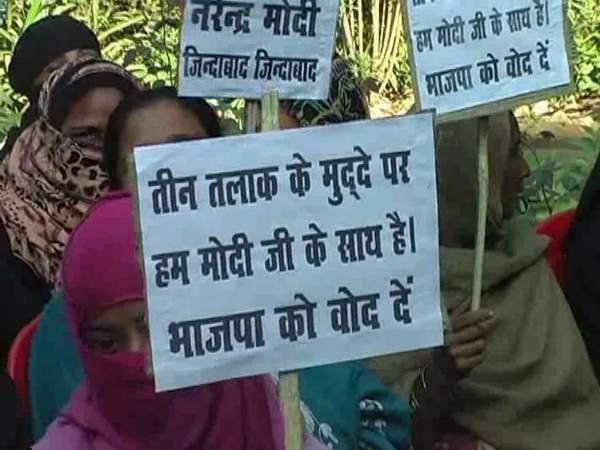 नरेन्द्र मोदी
जिन्दाबाद जिन्दाबाद
हम मोदी जी के साथ है।
भाजपा को वोद दें
तीन तलाक के मुद्दे पर
हम मोदी जी के साथ है।
भाजपा को वोद दें